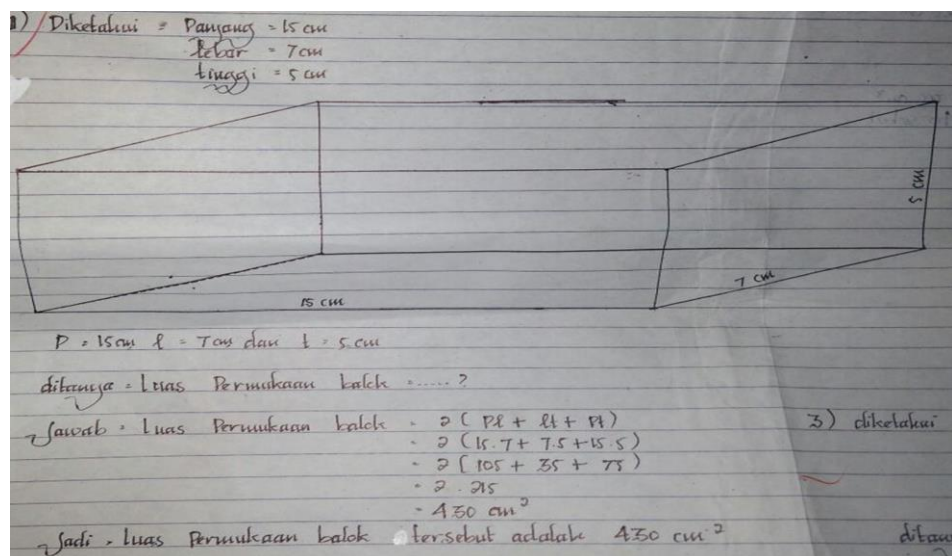 1) Diketahui = Panjang = 15 cm
lebar = 7 cm
tinggi = 5 cm
5 cm
7 cm
15 cm
P = 15 cm l = 7 cm dan t = 5 cm
ditanya = Luas Permukaan balok = ..... ?
Jawab = Luas Permukaan balok = 2 ( Pl + lt + Pt )
= 2 ( 15.7 + 7.5 + 15.5 )
= 2 ( 105 + 35 + 75 )
= 2 . 215
= 430 cm²
Jadi, luas Permukaan balok tersebut adalah 430 cm²
3) diketahui
ditan